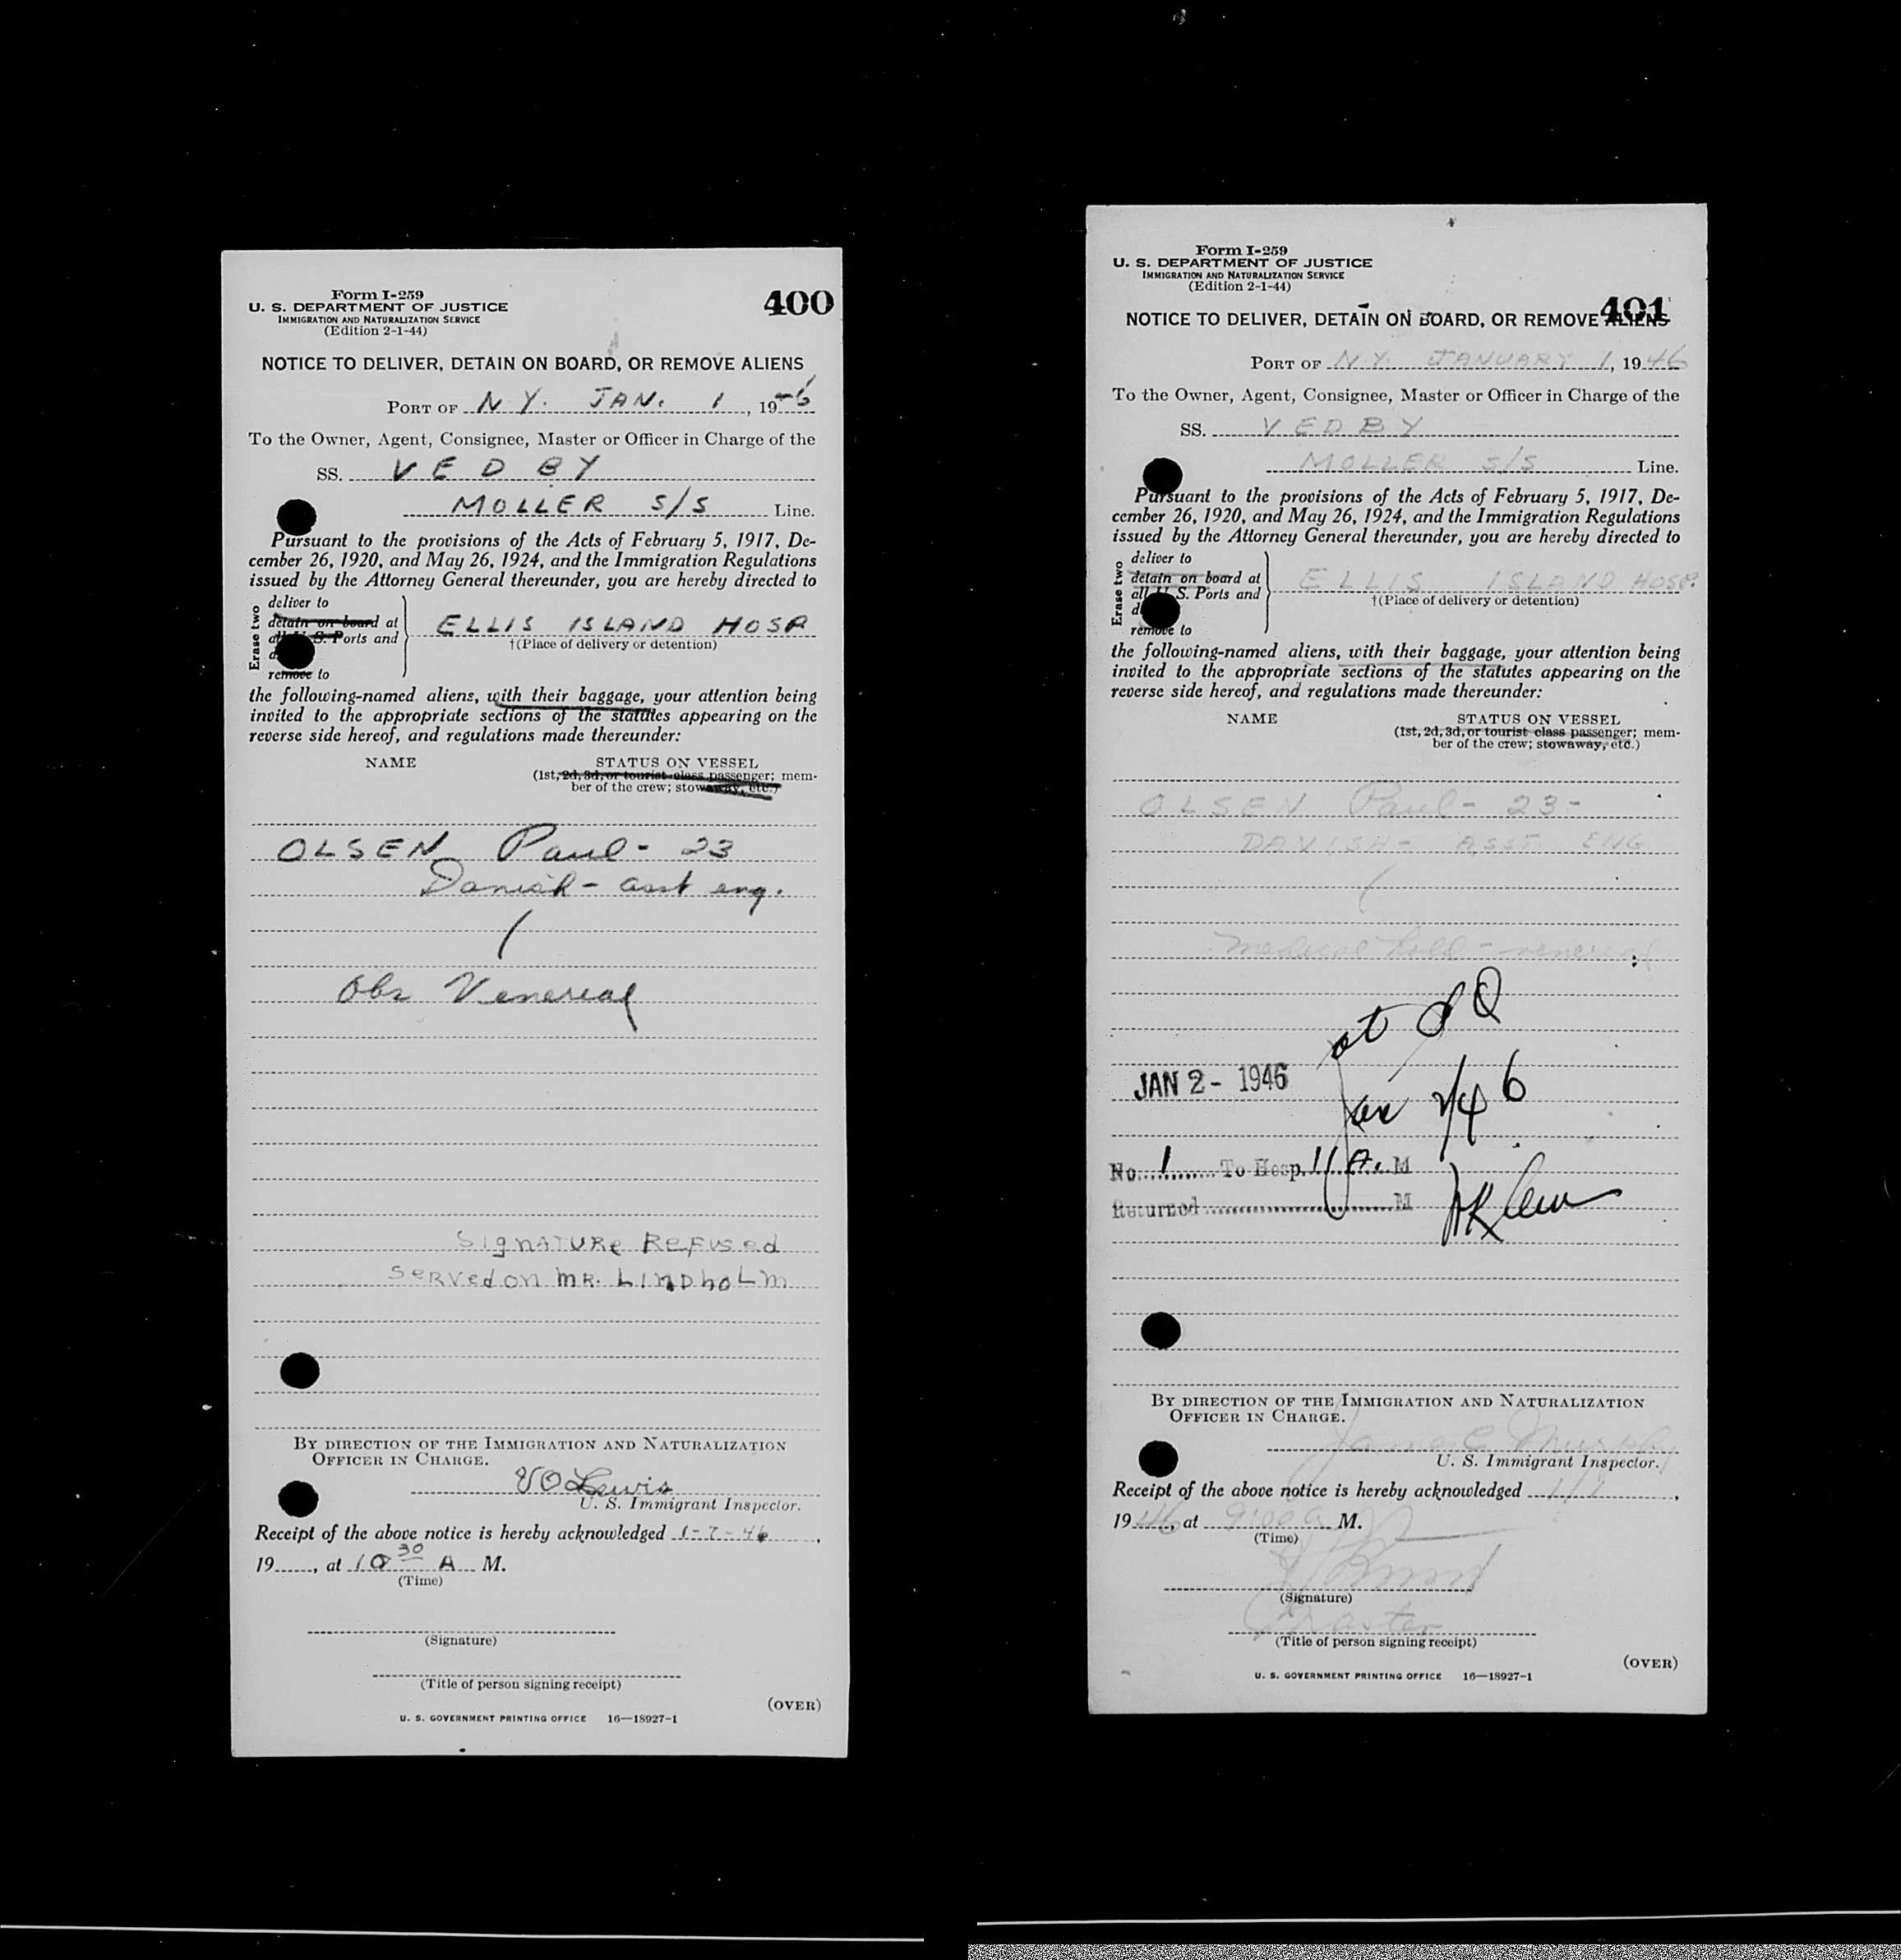 Form I-259
U. S. DEPARTMENT OF JUSTICE
IMMIGRATION AND NATURALIZATION SERVICE
(Edition 2-1-44)
400
NOTICE TO DELIVER, DETAIN ON BOARD, OR REMOVE ALIENS
PORT OF N.Y. JAN. 1, 1946
To the Owner, Agent, Consignee, Master or Officer in Charge of the
SS. VEDBY
MOLLER S/S Line.
Pursuant to the provisions of the Acts of February 5, 1917, De-
cember 26, 1920, and May 26, 1924, and the Immigration Regulations
issued by the Attorney General thereunder, you are hereby directed to
Erase two
deliver to
detain on board at
all U. S. Ports and
remove to
ELLIS ISLAND HOSP
†(Place of delivery or detention)
the following-named aliens, with their baggage, your attention being
invited to the appropriate sections of the statutes appearing on the
reverse side hereof, and regulations made thereunder:
NAME
STATUS ON VESSEL
(1st, 2d, 3d, or tourist class passenger; mem-
ber of the crew; stowaway, etc.)
OLSEN Paul - 23
Danish - asst eng.
Obs Venereal
Signature Refused
Served on Mr. Lindholm
BY DIRECTION OF THE IMMIGRATION AND NATURALIZATION
OFFICER IN CHARGE.
VO Lewis
U. S. Immigrant Inspector.
Receipt of the above notice is hereby acknowledged 1-7-46,
19, at 10 30 A M.
(Time)
(Signature)
(Title of person signing receipt)
(OVER)
U. S. GOVERNMENT PRINTING OFFICE 16—18927-1
Form I-259
U. S. DEPARTMENT OF JUSTICE
IMMIGRATION AND NATURALIZATION SERVICE
(Edition 2-1-44)
401
NOTICE TO DELIVER, DETAIN ON BOARD, OR REMOVE ALIENS
PORT OF N.Y. JANUARY 1, 1946
To the Owner, Agent, Consignee, Master or Officer in Charge of the
SS. VEDBY
MOLLER S/S Line.
Pursuant to the provisions of the Acts of February 5, 1917, De-
cember 26, 1920, and May 26, 1924, and the Immigration Regulations
issued by the Attorney General thereunder, you are hereby directed to
Erase two
deliver to
detain on board at
all U. S. Ports and
remove to
ELLIS ISLAND HOSP.
†(Place of delivery or detention)
the following-named aliens, with their baggage, your attention being
invited to the appropriate sections of the statutes appearing on the
reverse side hereof, and regulations made thereunder:
NAME
STATUS ON VESSEL
(1st, 2d, 3d, or tourist class passenger; mem-
ber of the crew; stowaway, etc.)
OLSEN Paul - 23 -
DANISH - ASST ENG
medical hold - venereal
at
JAN 2 - 1946
Jan 2/46
No. 1 To Hosp. 11 A. M
Returned M
BY DIRECTION OF THE IMMIGRATION AND NATURALIZATION
OFFICER IN CHARGE.
James C Murphy
U. S. Immigrant Inspector.
Receipt of the above notice is hereby acknowledged 1/1,
1946, at 9:00 a M.
(Time)
(Signature)
Master
(Title of person signing receipt)
(OVER)
U. S. GOVERNMENT PRINTING OFFICE 16—18927-1